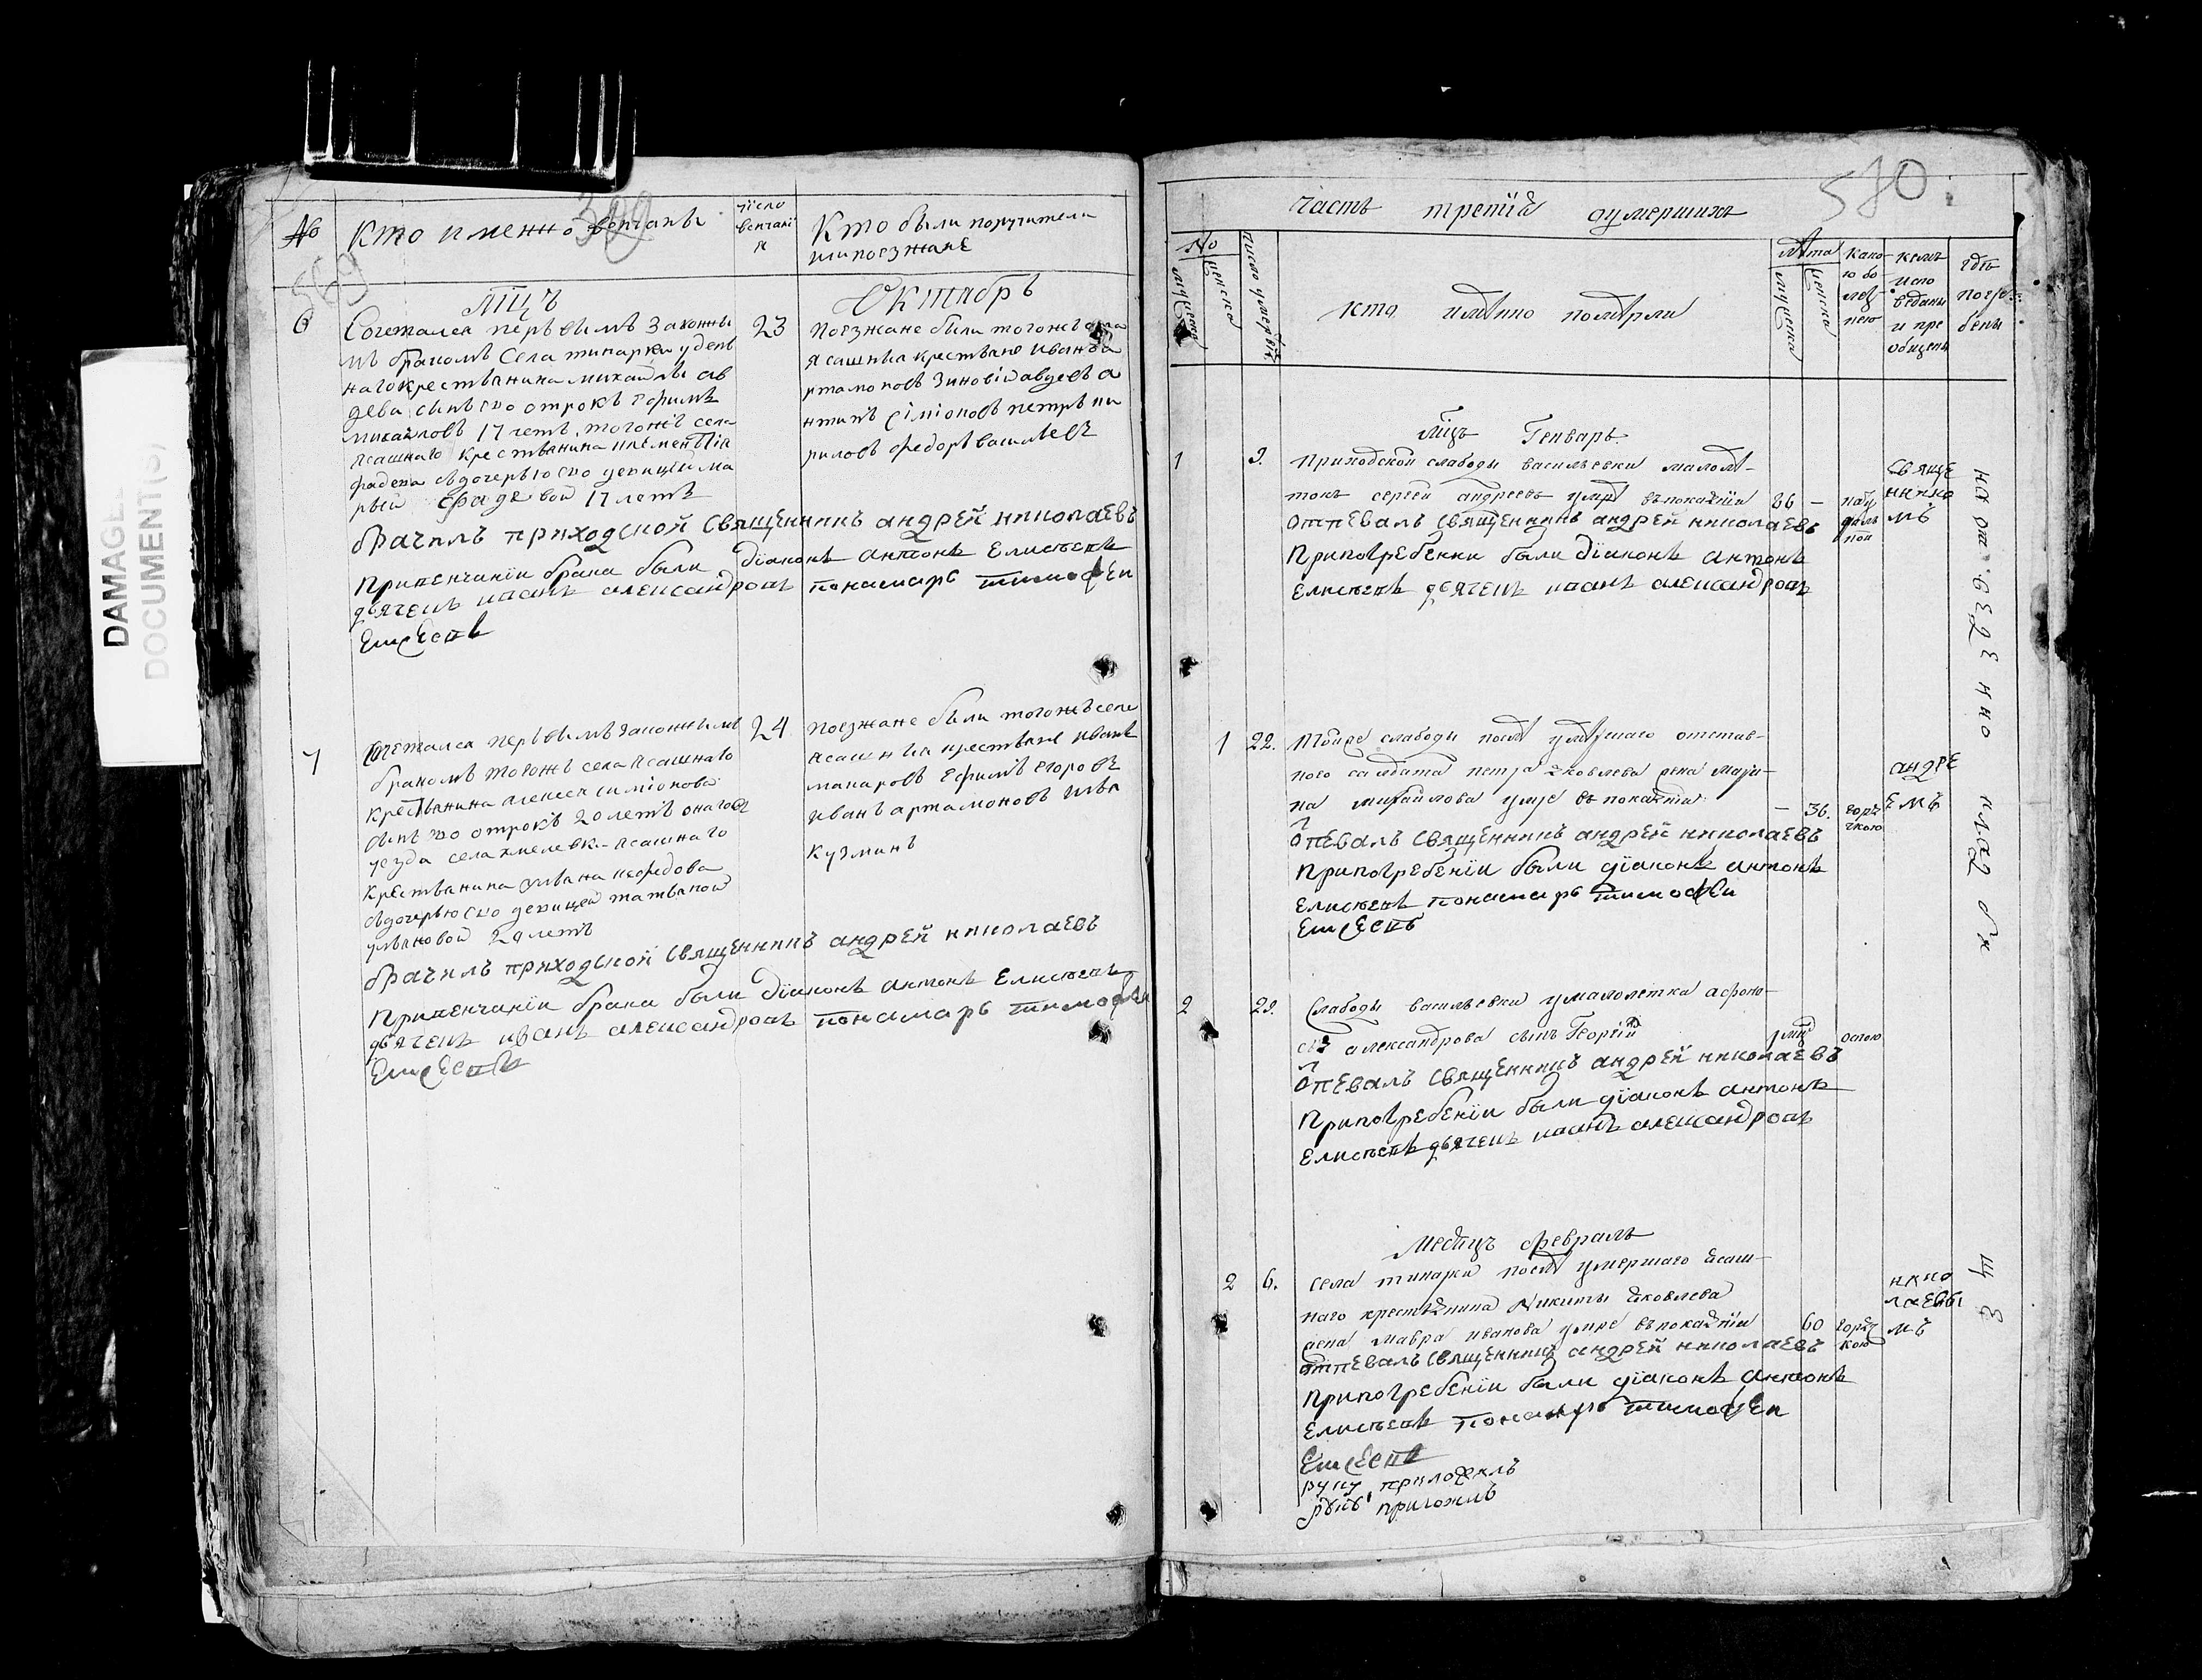 DAMAGE
DOCUMENT(S)
№
Кто именно венчаны
число
венчані
я
Кто были поручители
или поезжане
569
Мцъ
Октябръ
6
Сочетался первымъ Законны
мъ бракомъ Села тинарки удель
наго крестьянина михайлы ав
деева сынъ ево отрокъ Ефимъ
михайловъ 17 летъ, тогожъ села
Ясашнаго крестьянина
фадеева здочерью ево девицей ма
рьей фадеевой 17 летъ
23
поезжане были тогожъ села
Ясашныя крестьяне Иванъ а
ртамоновъ Зиновій авдеевъ а
нтипъ Симіоновъ петръ ки
риловъ федоръ васильевъ
брачилъ приходской Священникъ андрей николаевъ
Привенчаніи брака были діаконъ антонъ Елисеевъ
дьячекъ иванъ александровъ понамарь тимофеи
Елисеевъ
7
Сочетался первымъ Законнымъ
бракомъ тогожъ села Ясашнаго
крестьянина алексея симіонова
сынъ ево отрокъ 20 летъ онагожъ
уезда села хмелевки Ясашнаго
крестьянина ульяна нефедова
здочерью ево девицей татьяной
ульяновой 20 летъ
24
поезжане были тогожъ села
Ясашныя крестьяне иванъ
макаровъ Ефимъ Егоровъ
иванъ артамоновъ илья
кузминъ
брачилъ приходской Священникъ андрей николаевъ
Привенчаніи брака были діаконъ антонъ Елисеевъ
дьячекъ иванъ александровъ понамарь тимофеи
Елисеевъ
580
Часть третія оумершихъ
№
мужеска
женска
число умерших
кто имянно померли
лѣта
мужеска
женска
како
ю бо
лез
нею
кемъ
испо
веданы
и прі
общены
гдѣ
погре
бены
Мцъ Генварь
1
9.
Приходской слабоды васильевки малолѣ-
токъ сергей андреевъ умре въ покаяніи
36 –
Отпевалъ Священникъ андрей николаевъ
Припогребении были діаконъ антонъ
Елисеевъ дьячекъ иванъ александровъ
Свяще
ннико
мъ
1 22.
Тойже слабоды после умершаго отстав-
ного салдата петра яковлева жена мари-
на михайлова умре въ покаяніи
– 36.
горя
чкою
Отпевалъ Священникъ андрей николаевъ
Припогребеніи были діаконъ антонъ
Елисеевъ понамарь тимофеи
Елисеевъ
андре
емъ
2
29.
Слабоды васильевки умалолетка
александрова сынъ Георгій
оспою
Отпевалъ Священникъ андрей николаевъ
Припогребеніи были діаконъ антонъ
Елисеевъ дьячекъ иванъ александровъ
Месяцъ февраль
2 6.
села тинарки после умершаго Ясаш-
наго крестьянина Никиты яковлева
жена мавра иванова умре въ покаяніи
60
горяч
кою
Отпевалъ Священникъ андрей николаевъ
Припогребеніи были діаконъ антонъ
Елисеевъ понамарь тимофеи
Елисеевъ
руку приложилъ
нико
лаевы
мъ
на отведенно кладбищѣ